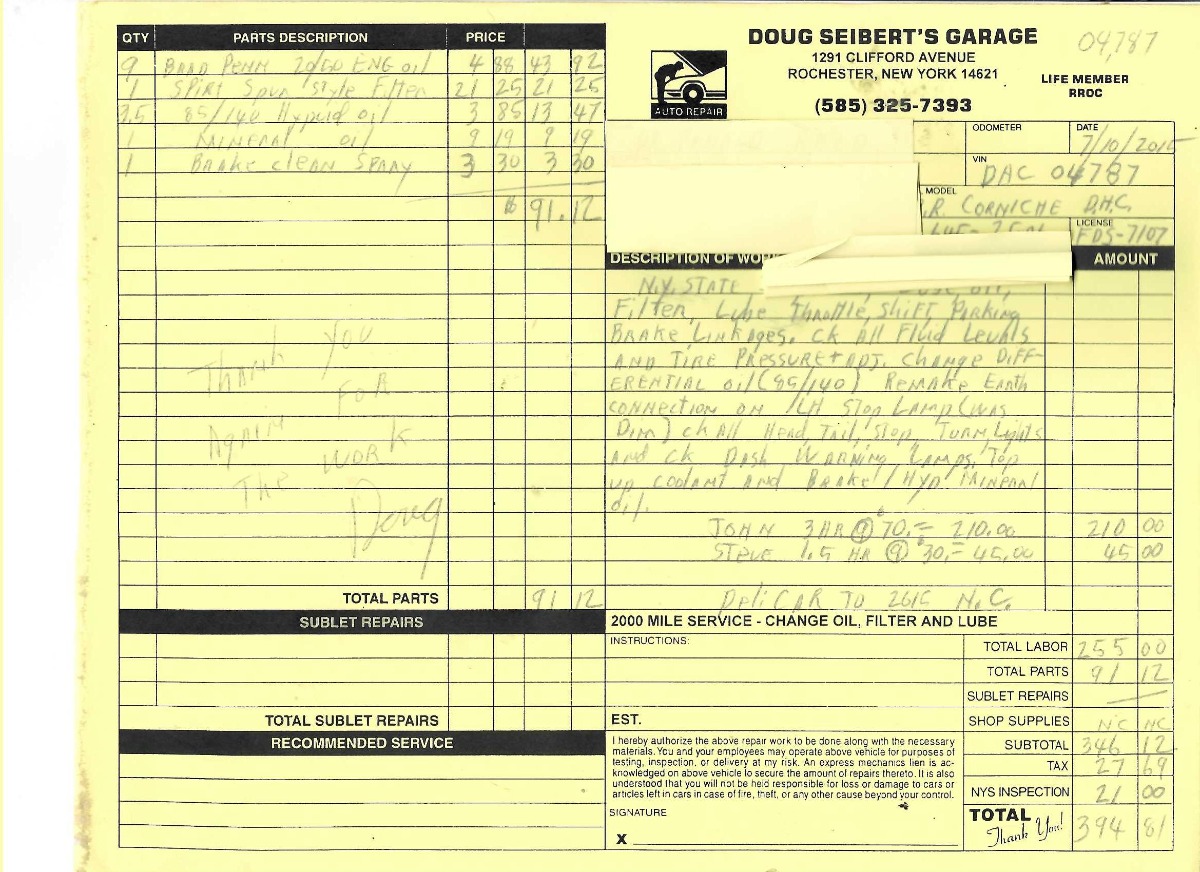 QTY PARTS DESCRIPTION PRICE
9 BRAD PENN 20/50 ENG oil 4 88 43 92
1 SPIRT Spun Style Filter 21 25 21 25
3.5 85/140 Hypoid oil 3 85 13 47
1 MINERAL oil 9 19 9 19
1 Brake clean SPRAY 3 30 3 30
$ 91.12
THANK YOU
FOR
AGAIN
THE WORK
Doug
TOTAL PARTS 91 12
SUBLET REPAIRS
TOTAL SUBLET REPAIRS
RECOMMENDED SERVICE
AUTO REPAIR
DOUG SEIBERT'S GARAGE
1291 CLIFFORD AVENUE
ROCHESTER, NEW YORK 14621
(585) 325-7393
04,787
LIFE MEMBER
RROC
ODOMETER
DATE
7/10/2015
VIN
DAC 04787
MODEL
.R. CORNICHE D.H.C.
LICENSE
FDS-7107
DESCRIPTION OF WOR AMOUNT
N.Y. STATE
Filter, Lube Throttle, Shift, Parking
Brake Linkages. ck All Fluid Levels
AND TIRE PRESSURE + ADJ. CHANGE DIFF-
ERENTIAL oil (85/140) REMAKE Earth
connection on LH Stop Lamp (WAS
Dim) ck All Head, Tail, Stop, Turn, Lights
And ck Dash Warning Lamps, Top
up coolant and Brake / Hyd Mineral
oil.
JOHN 3 HR @ 70.= 210.00 210 00
STEVE 1.5 HR @ 30.= 45.00 45 00
Deli CAR TO 2615 N.C.
2000 MILE SERVICE - CHANGE OIL, FILTER AND LUBE
INSTRUCTIONS:
EST.
I hereby authorize the above repair work to be done along with the necessary
materials. You and your employees may operate above vehicle for purposes of
testing, inspection, or delivery at my risk. An express mechanics lien is ac-
knowledged on above vehicle to secure the amount of repairs thereto. It is also
understood that you will not be held responsible for loss or damage to cars or
articles left in cars in case of fire, theft, or any other cause beyond your control.
SIGNATURE
X
TOTAL LABOR 255 00
TOTAL PARTS 91 12
SUBLET REPAIRS —
SHOP SUPPLIES NC NC
SUBTOTAL 346 12
TAX 27 69
NYS INSPECTION 21 00
TOTAL Thank You! 394 81